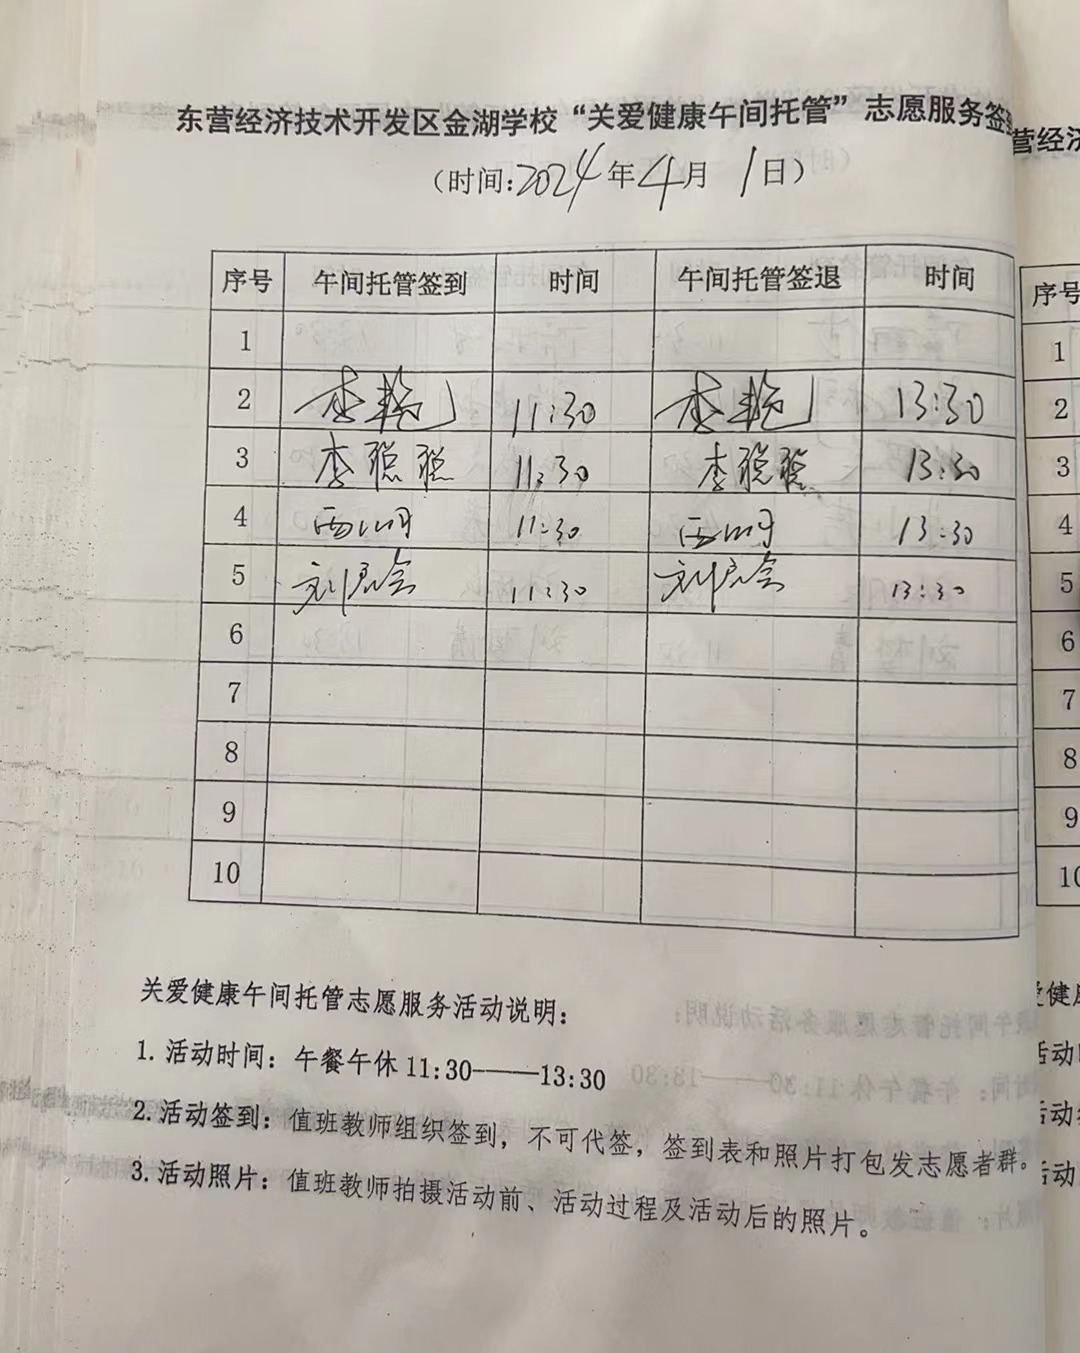 东营经济技术开发区金湖学校“关爱健康午间托管”志愿服务签
(时间:2024年4月1日)
序号 午间托管签到 时间 午间托管签退 时间
1
2 李艳 11:30 李艳 13:30
3 李聪聪 11:30 李聪聪 13:30
4 11:30 13:30
5 11:30 13:30
6
7
8
9
10
关爱健康午间托管志愿服务活动说明：
1. 活动时间：午餐午休 11:30——13:30
2. 活动签到：值班教师组织签到，不可代签，签到表和照片打包发志愿者群。
3. 活动照片：值班教师拍摄活动前、活动过程及活动后的照片。
营经济
序号
1
2
3
4
5
6
7
8
9
10
爱健康
活动
活动
活动